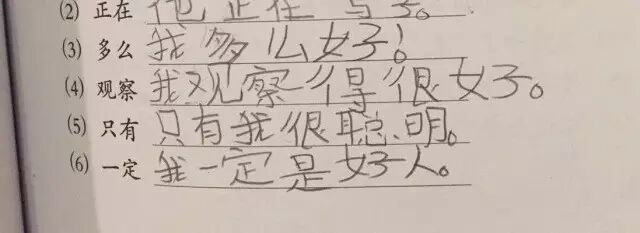 (2) 正在 他正在写字。
(3) 多么 我多么好！
(4) 观察 我观察得很好。
(5) 只有 只有我很聪明。
(6) 一定 我一定是好人。